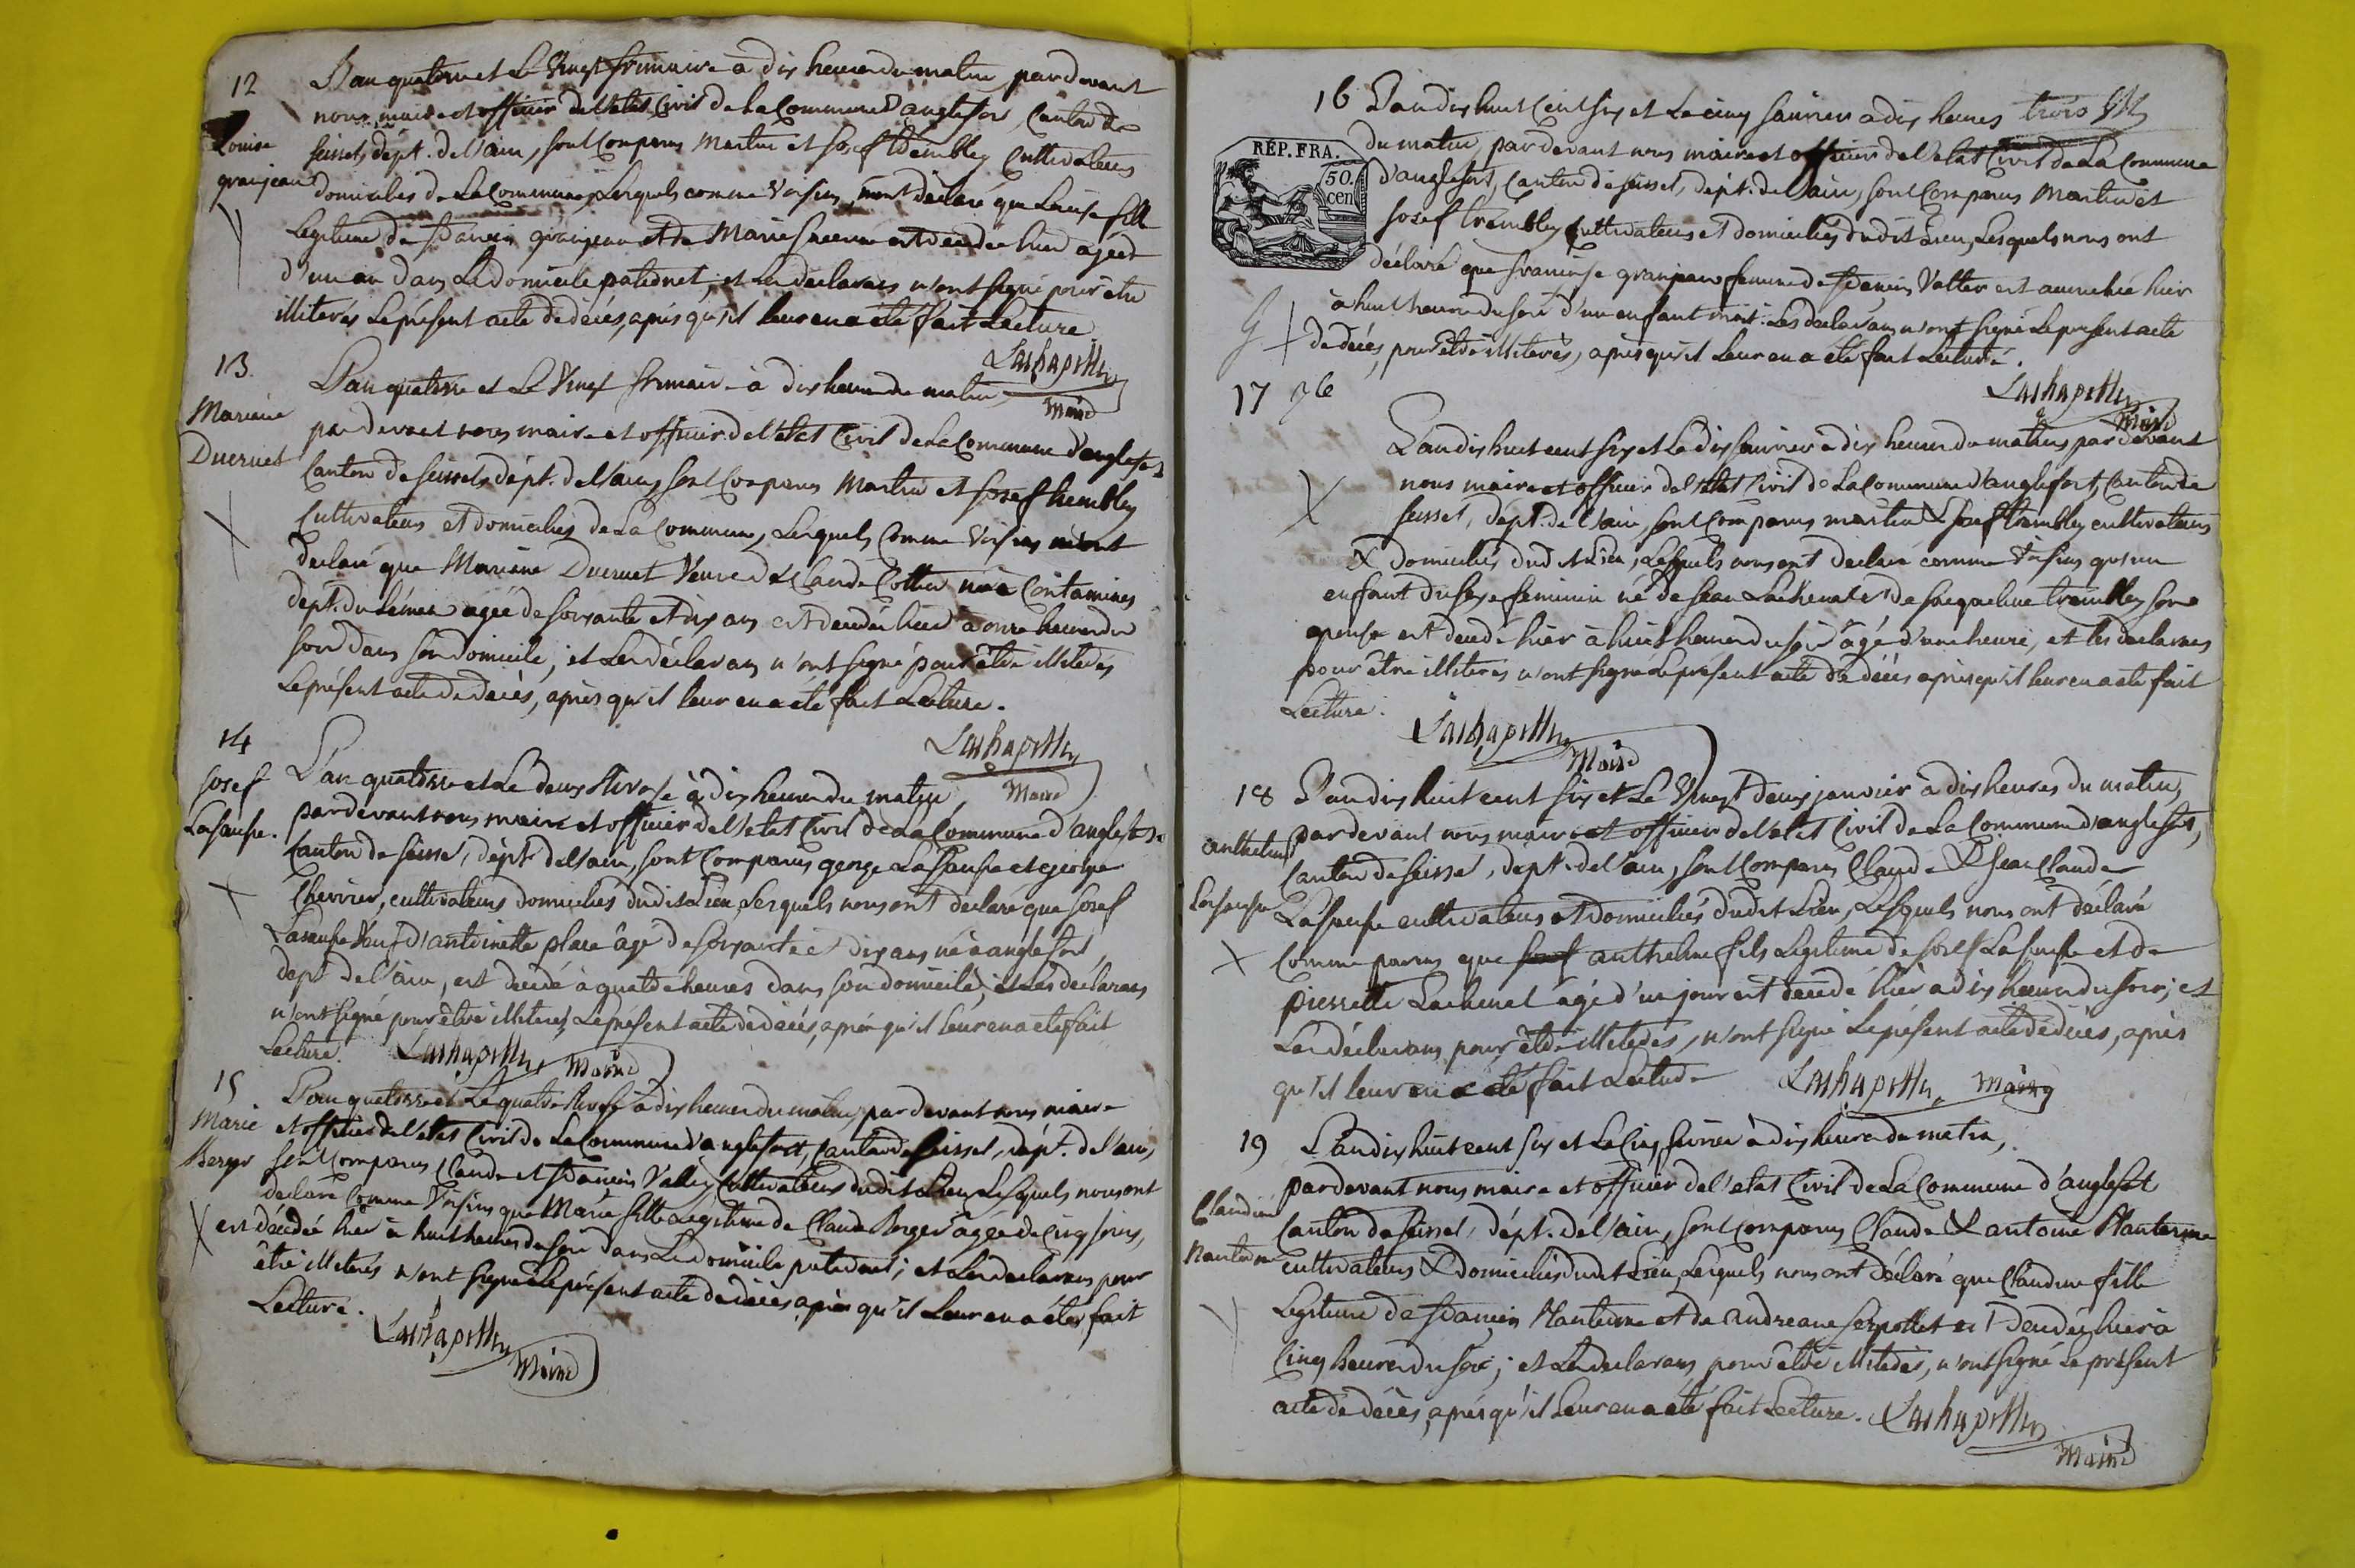 12
Louise
granjean
L'an quatorze et Le Vingt frimaire à dix heures du matin, par devant
nous maire et officier de l'etat Civil de La Commune d'anglefort, Canton de
seissel, dépt. de l'ain, sont Comparus Martin et Josef trembley Cultivateurs
domiciliés de La Commune, Lesquels comme Voisins, nous ont déclaré que Louise fille
Legitime de francois granjean et de Marie est decedée hier agée
d'un an dans Le domicile paternel, et Les declarans n'ont signé pour être
illiterés Le présent acte de décés, aprés qu'il leur en a été fait Lecture.
Lachapelle
Maire
13.
Mariane
Ducruet
L'an quatorze et Le Vingt frimaire à dix heures du matin,
par devant nous maire et officier de l'etat Civil de La Commune d'anglefort
Canton de seissel, dépt. de l'ain, sont Comparus Martin et Josef trembley
Cultivateurs et domiciliés de La Commune, Lesquels Comme Voisins nous ont
declaré que Mariane Ducruet Veuve de Claude Cottin née à Contamines
dept. du Léman agée de soixante et dix ans est decedée hier à onze heures du
soir dans son domicile; et Les déclarans n'ont signé pour être illiterés
Le présent acte de décès, après qu'il leur en a été fait Lecture.
Lachapelle
Maire
14
Josef
Lasausse.
L'an quatorze et Le deux Nivose à dix heures du matin,
par devant nous maire et officier de l'etat Civil de La Commune d'anglefort
Canton de seissel, dépt. de l'ain, sont Comparus george Lasausse et george
Cherrier, cultivateurs domiciliés dudit Lieu, Lesquels nous ont declaré que Josef
Lasausse Veuf d'antoinette place âgé de soixante et dix ans né à anglefort,
dept de l'ain, est decedé à quatre heures dans son domicile; et Les déclarans
n'ont signé pour être illiterés, Le présent acte de décés, aprés qu'il leur en a été fait
Lecture. Lachapelle Maire
15
Marie
Berger
L'an quatorze et Le quatre Nivose à dix heures du matin, par devant nous maire
et officier de l'etat Civil de La Commune d'anglefort, Canton de seissel, dépt. de l'ain,
sont Comparus Claude et francois Vallier, Cultivateurs dudit Lieu, Lesquels nous ont
declaré Comme Voisins que Marie fille Legitime de Claude Berger agée de Cinq jours,
est décedée hier à huit heures du soir dans Le domicile paternel; et Les declarans pour
être illiterés n'ont signé Le présent acte de décés aprés qu'il Leur en a été fait
Lecture.
Lachapelle
Maire
16 L'an dix huit Cent six et Le cinq janvier à dix heures trois
RÉP. FRA.
50.
cen
du matin, par devant nous maire et officier de l'etat Civil de La Commune
d'anglefort, Canton de seissel, dépt. de l'ain, sont Comparus Martin et
Josef trembley Cultivateurs et domiciliés dudit Lieu, Lesquels nous ont
déclaré que francoise granjean femme de francois Vallier est accouchée hier
à huit heures du soir d'un enfant mort. Les declarans n'ont signé Le present acte
de décés, pour être illiterés, aprés qu'il Leur en a été fait Lecture.
Lachapelle
Maire
17
L'an dix huit cent six et Le dix janvier à dix heures du matin, par devant
nous maire et officier de l'etat Civil de La Commune d'anglefort, Canton de
seissel, dépt. de l'ain, sont Comparus martin & Josef trembley cultivateurs
& domiciliés dudit Lieu, Lesquels nous ont declaré comme Voisins qu'un
enfant du sexe feminin né de Jean Lachenal & de Jacqueline trembley son
epouse est decedé hier à huit heures du soir âgé d'une heure, et les declarans
pour être illiterés n'ont signé Le présent acte de décés aprés qu'il leur en a été fait
Lecture.
Lachapelle
Maire
18
anthelme
Lasausse
L'an dix huit cent six et Le Vingt deux janvier à dix heures du matin,
par devant nous maire et officier de l'etat Civil de La Commune d'anglefort,
Canton de seissel, dept. de l'ain, sont Comparus Claude & Jean Claude
Lasausse cultivateurs et domiciliés dudit Lieu, Lesquels nous ont déclaré
Comme parens que Josef anthelme fils Legitime de Josef Lasausse et de
pierrette Lachenal âgé d'un jour est decedé hier à dix heures du soir; et
Les déclarans pour être illiterés, n'ont signé Le présent acte de décés, après
qu'il leur en a été fait Lecture Lachapelle Maire
19
Claudine
Nanterme
L'an dix huit cent six et Le Cinq fevrier à dix heures du matin,
par devant nous maire et officier de l'etat Civil de La Commune d'anglefort
Canton de seissel, dépt. de l'ain, sont Comparus Claude & antoine Nanterme
Cultivateurs & domiciliés dudit Lieu, Lesquels nous ont déclaré que Claudine fille
Legitime de francois Nanterme et de andreane serpollet est decedée hier à
Cinq heures du soir; et Les declarans, pour être illiterés, n'ont signé Le présent
acte de décés, aprés qu'il Leur en a été fait Lecture. Lachapelle
Maire